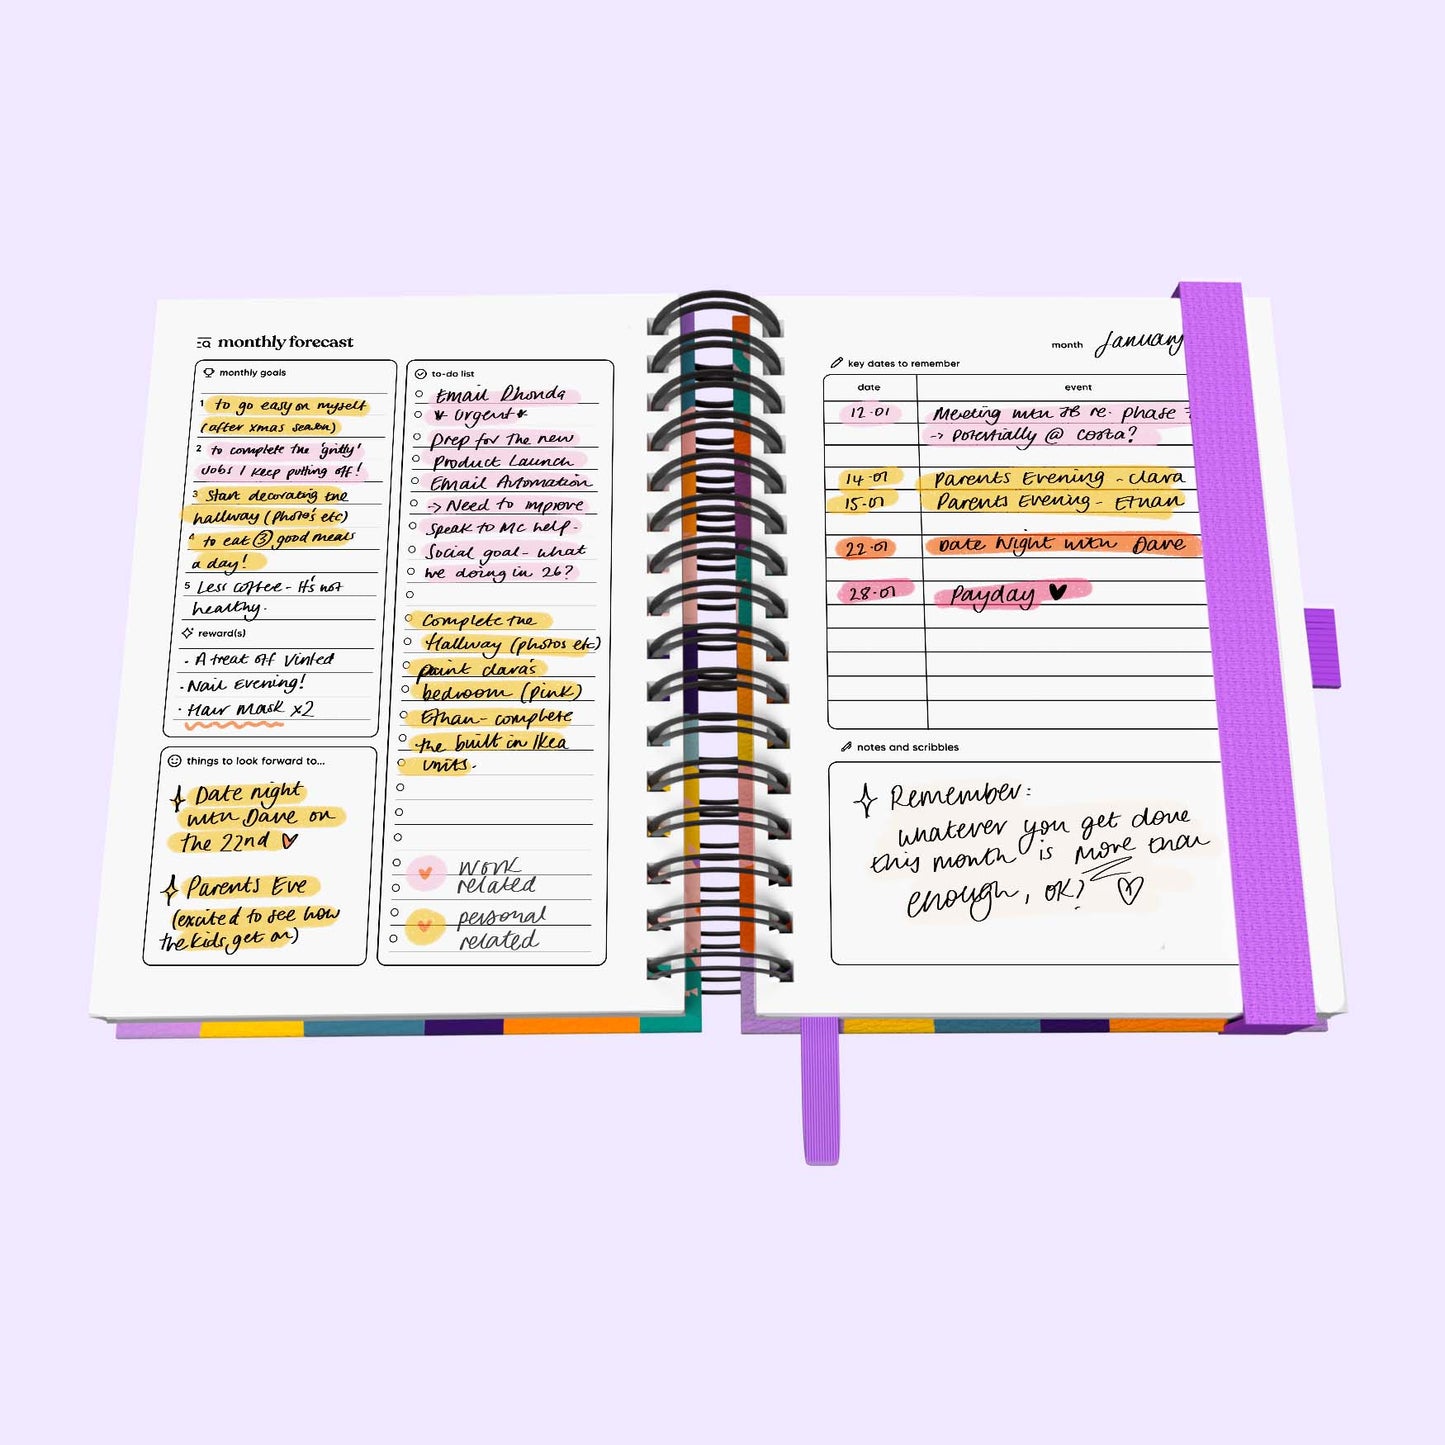 monthly forecast
monthly goals
1 to go easy on myself
(after xmas season)
2 to complete the 'gritty'
jobs I keep putting off!
3 Start decorating the
hallway (photo's etc)
4 to eat 3 good meals
a day!
5 Less coffee - It's not
healthy.
reward(s)
· A treat off Vinted
· Nail Evening!
· Hair Mask x2
things to look forward to...
Date night
with Dave on
the 22nd
Parents Eve
(excited to see how
the kids get on)
to-do list
Email Rhonda
* Urgent *
Prep for the new
Product Launch
Email Automation
-> Need to improve
Speak to MC help -
Social goal - what
we doing in 26?
Complete the
Hallway (photos etc)
paint clara's
bedroom (pink)
Ethan - complete
the built in Ikea
units.
work
related
personal
related
month January
key dates to remember
date event
12.01 Meeting with JB re. phase
-> potentially @ costa?
14.01 Parents Evening - Clara
15.01 Parents Evening - Ethan
22.01 Date Night with Dave
28.01 Payday
notes and scribbles
Remember:
whatever you get done
this month is more than
enough, ok?